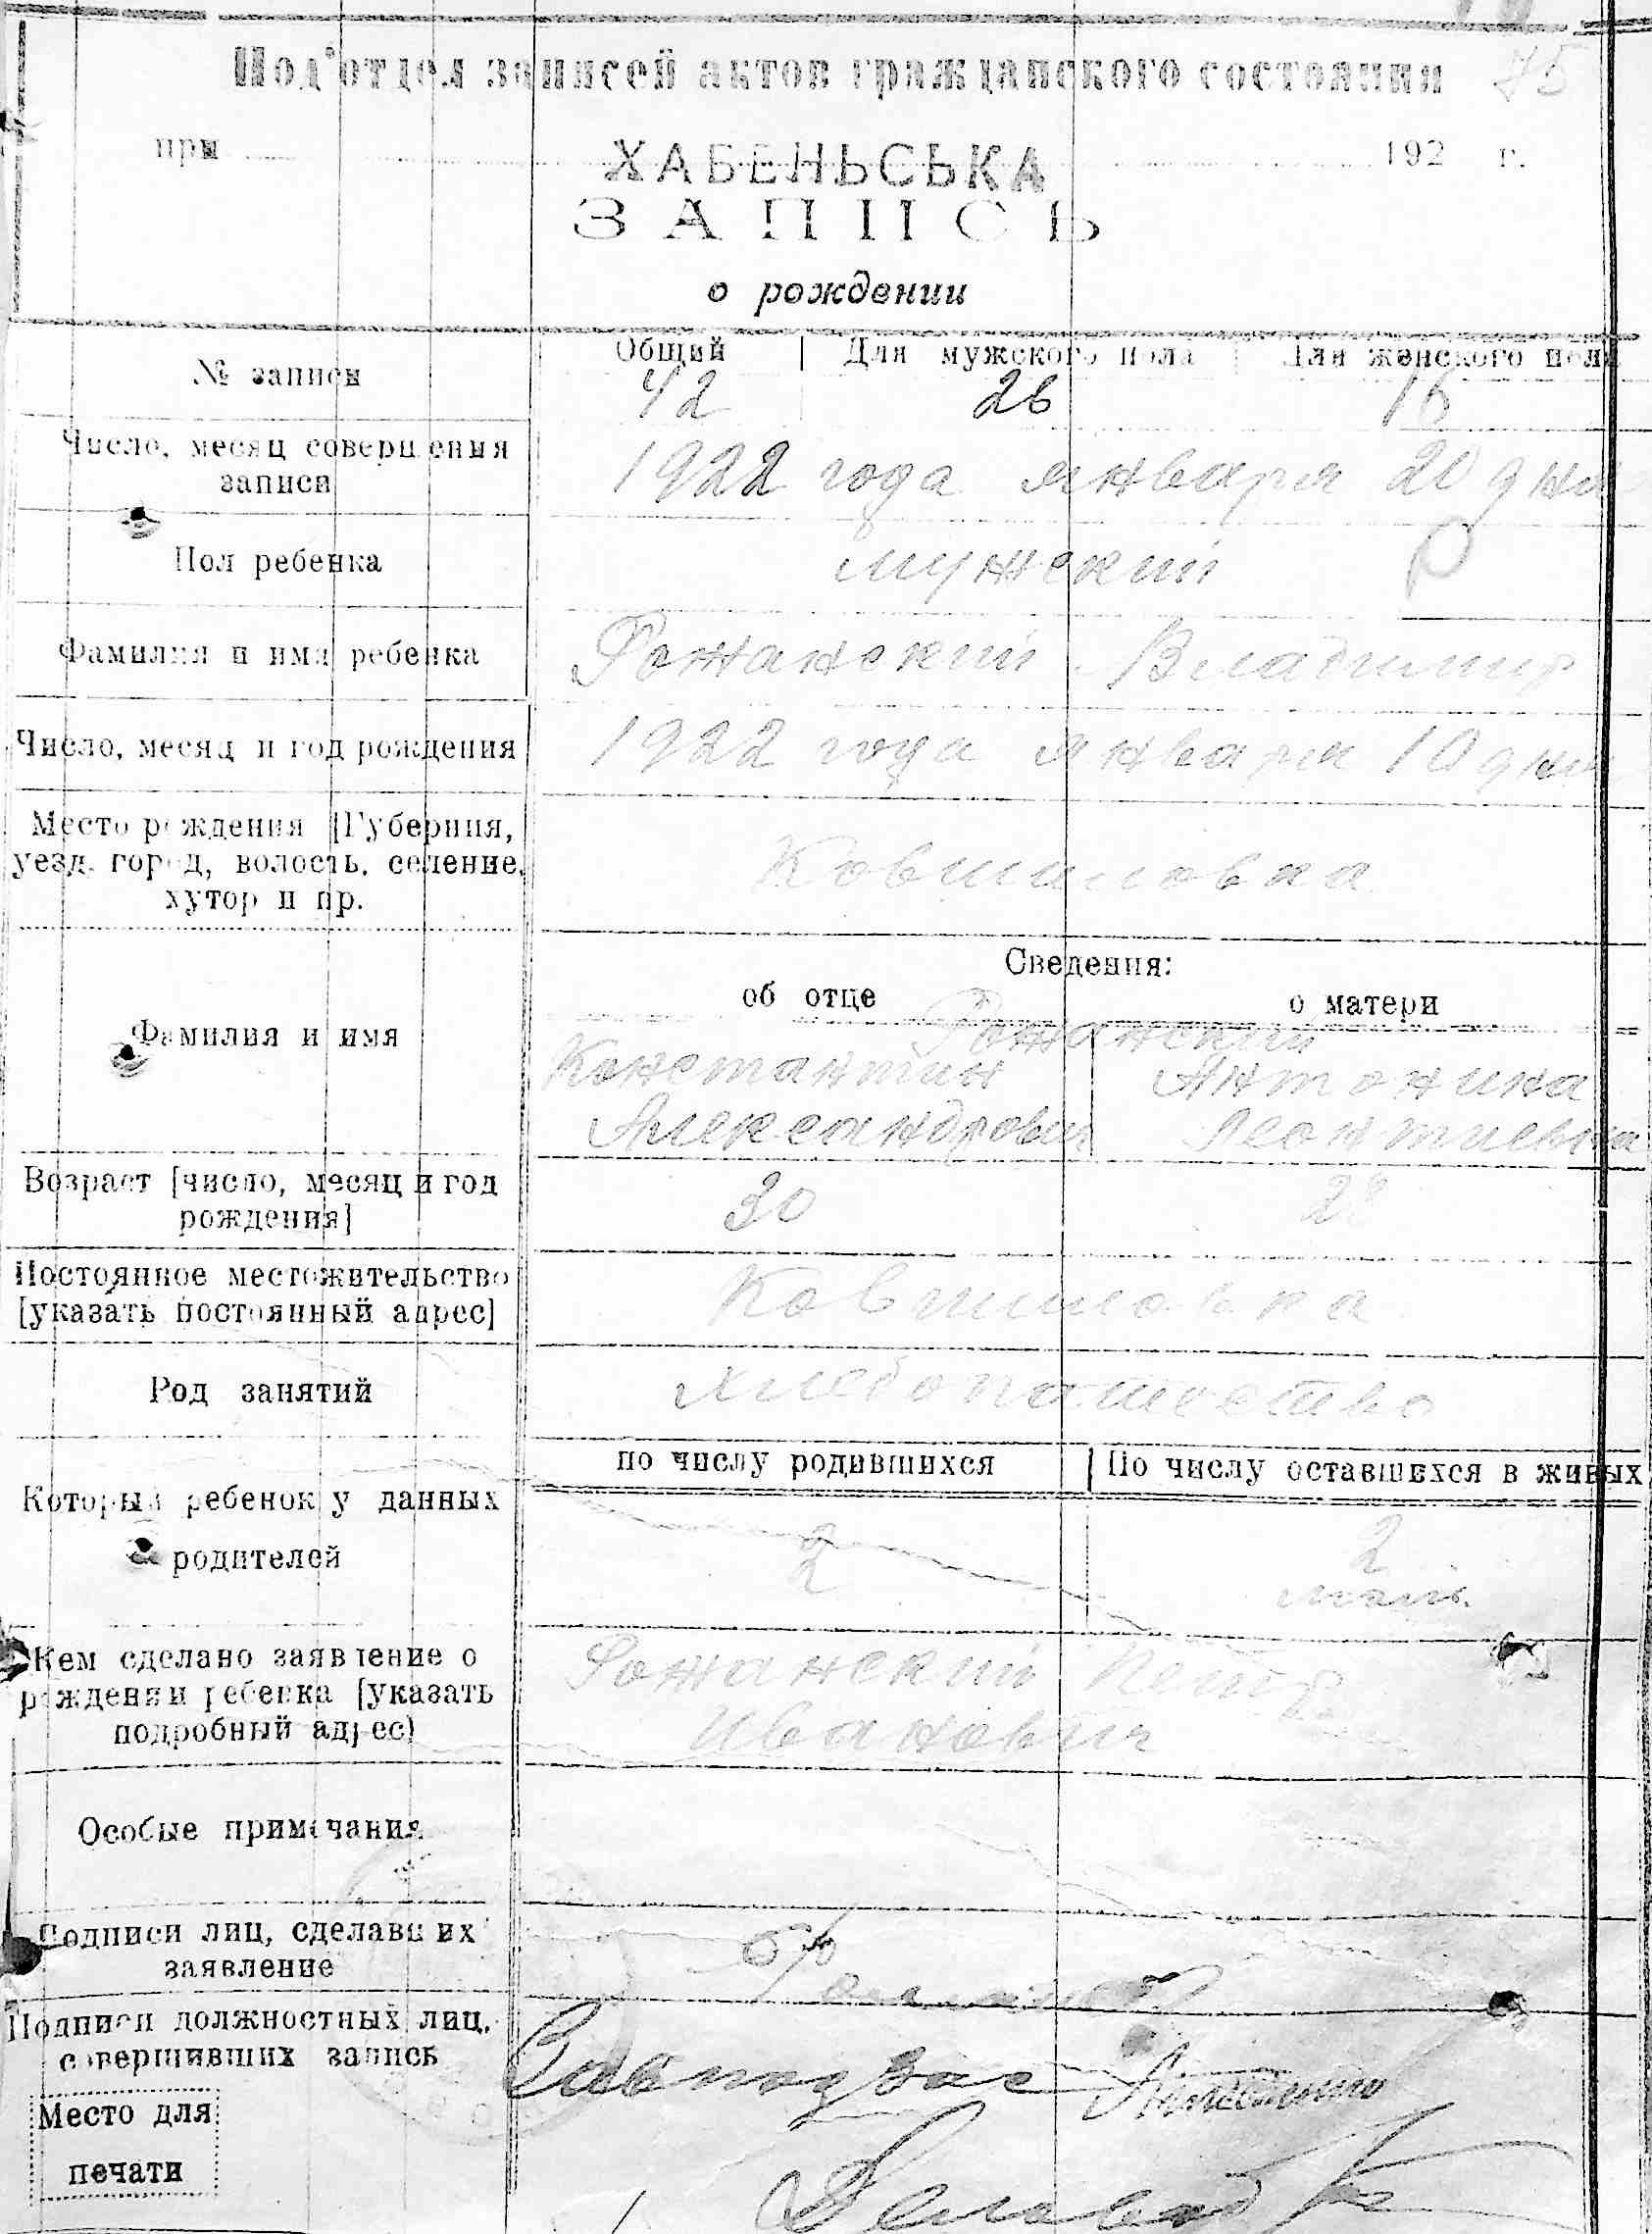 75
Под'отдел записей актов гражданского состояния
при ХАБЕНЬСЬКА 192 г.
ЗАПИСЬ
о рождении
№ записи
Общий
Для мужского пола
Для женского пола
42
26
16
Число, месяц совершения
записи
1922 года января 20 дня
Пол ребенка
мужский
Фамилия и имя ребенка
Рожанский Владимир
Число, месяц и год рождения
1922 года января 10 дня
Место рождения [Губерния,
уезд, город, волость, селение,
хутор и пр.
Ковшиловка
Сведения:
об отце
о матери
Фамилия и имя
Рожанский
Константин
Антонина
Александрович
Леонтиевна
Возраст [число, месяц и год
рождения]
30
Постоянное местожительство
[указать постоянный адрес]
Ковшиловка
Род занятий
хлебопашество
Который ребенок у данных
родителей
по числу родившихся
По числу оставшихся в живых
2
2
Кем сделано заявление о
рождении ребенка [указать
подробный адрес)
Рожанский Петр
Иванович
Особые примечания
Подписи лиц, сделавших
заявление
Подписи должностных лиц,
совершивших запись
Завподзас
Место для
печати
Деловод